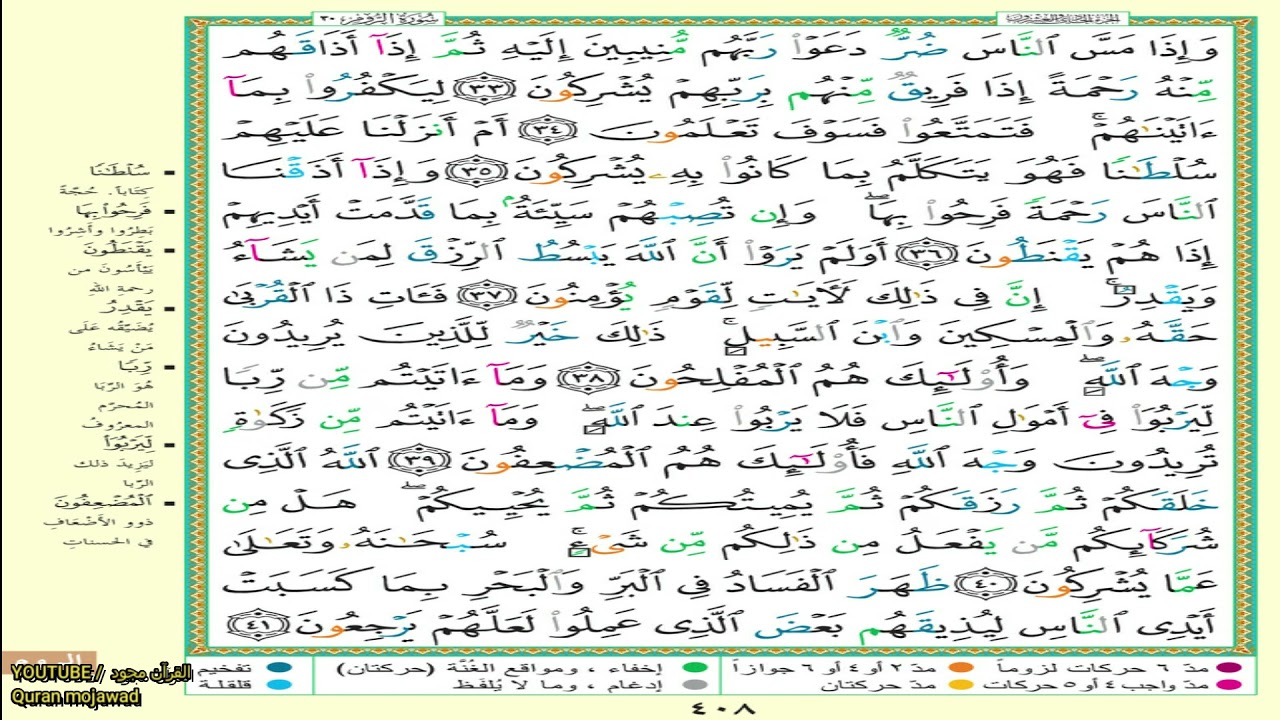 سُورَةُ الرُّومِ ٣٠
الجزء الحادي والعشرون
وَإِذَا مَسَّ ٱلنَّاسَ ضُرٌّ دَعَوْا۟ رَبَّهُم مُّنِيبِينَ إِلَيْهِ ثُمَّ إِذَآ أَذَاقَهُم
مِّنْهُ رَحْمَةً إِذَا فَرِيقٌ مِّنْهُم بِرَبِّهِمْ يُشْرِكُونَ ٣٣ لِيَكْفُرُوا۟ بِمَآ
ءَاتَيْنَٰهُمْ ۚ فَتَمَتَّعُوا۟ فَسَوْفَ تَعْلَمُونَ ٣٤ أَمْ أَنزَلْنَا عَلَيْهِمْ
سُلْطَٰنًا فَهُوَ يَتَكَلَّمُ بِمَا كَانُوا۟ بِهِۦ يُشْرِكُونَ ٣٥ وَإِذَآ أَذَقْنَا
ٱلنَّاسَ رَحْمَةً فَرِحُوا۟ بِهَا ۖ وَإِن تُصِبْهُمْ سَيِّئَةٌۢ بِمَا قَدَّمَتْ أَيْدِيهِمْ
إِذَا هُمْ يَقْنَطُونَ ٣٦ أَوَلَمْ يَرَوْا۟ أَنَّ ٱللَّهَ يَبْسُطُ ٱلرِّزْقَ لِمَن يَشَآءُ
وَيَقْدِرُ ۚ إِنَّ فِى ذَٰلِكَ لَـَٔايَٰتٍ لِّقَوْمٍ يُؤْمِنُونَ ٣٧ فَـَٔاتِ ذَا ٱلْقُرْبَىٰ
حَقَّهُۥ وَٱلْمِسْكِينَ وَٱبْنَ ٱلسَّبِيلِ ۚ ذَٰلِكَ خَيْرٌ لِّلَّذِينَ يُرِيدُونَ
وَجْهَ ٱللَّهِ ۖ وَأُو۟لَٰٓئِكَ هُمُ ٱلْمُفْلِحُونَ ٣٨ وَمَآ ءَاتَيْتُم مِّن رِّبًا
لِّيَرْبُوَا۟ فِىٓ أَمْوَٰلِ ٱلنَّاسِ فَلَا يَرْبُوا۟ عِندَ ٱللَّهِ ۖ وَمَآ ءَاتَيْتُم مِّن زَكَوٰةٍ
تُرِيدُونَ وَجْهَ ٱللَّهِ فَأُو۟لَٰٓئِكَ هُمُ ٱلْمُضْعِفُونَ ٣٩ ٱللَّهُ ٱلَّذِى
خَلَقَكُمْ ثُمَّ رَزَقَكُمْ ثُمَّ يُمِيتُكُمْ ثُمَّ يُحْيِيكُمْ ۖ هَلْ مِن
شُرَكَآئِكُم مَّن يَفْعَلُ مِن ذَٰلِكُم مِّن شَىْءٍ ۚ سُبْحَٰنَهُۥ وَتَعَٰلَىٰ
عَمَّا يُشْرِكُونَ ٤٠ ظَهَرَ ٱلْفَسَادُ فِى ٱلْبَرِّ وَٱلْبَحْرِ بِمَا كَسَبَتْ
أَيْدِى ٱلنَّاسِ لِيُذِيقَهُم بَعْضَ ٱلَّذِى عَمِلُوا۟ لَعَلَّهُمْ يَرْجِعُونَ ٤١
سُلْطَٰنًا
كِتَاباً. حُجَّةً
فَرِحُوا۟ بِهَا
بَطِرُوا وأَشِرُوا
يَقْنَطُونَ
يَيْأَسُونَ من
رحمةِ اللهِ
يَقْدِرُ
يُضَيِّقُه عَلَى
مَنْ يَشَاءُ
رِّبًا
هُوَ الرِّبَا
المُحرَّم
المعروفُ
لِّيَرْبُوَا۟
ليَزِيدَ ذلك
الرِّبا
ٱلْمُضْعِفُونَ
ذوو الأَضْعَافِ
في الحسناتِ
مدّ ٦ حركات لزوماً
مدّ ٢ أو ٤ أو ٦ جوازاً
إخفاء ، ومواقع الغُنَّة (حركتان)
تفخيم
مدّ واجب ٤ أو ٥ حركات
مدّ حركتان
إدغام ، وما لا يُلفَظ
قلقلة
٤٠٨
YOUTUBE / القرآن مجود
Quran mojawad